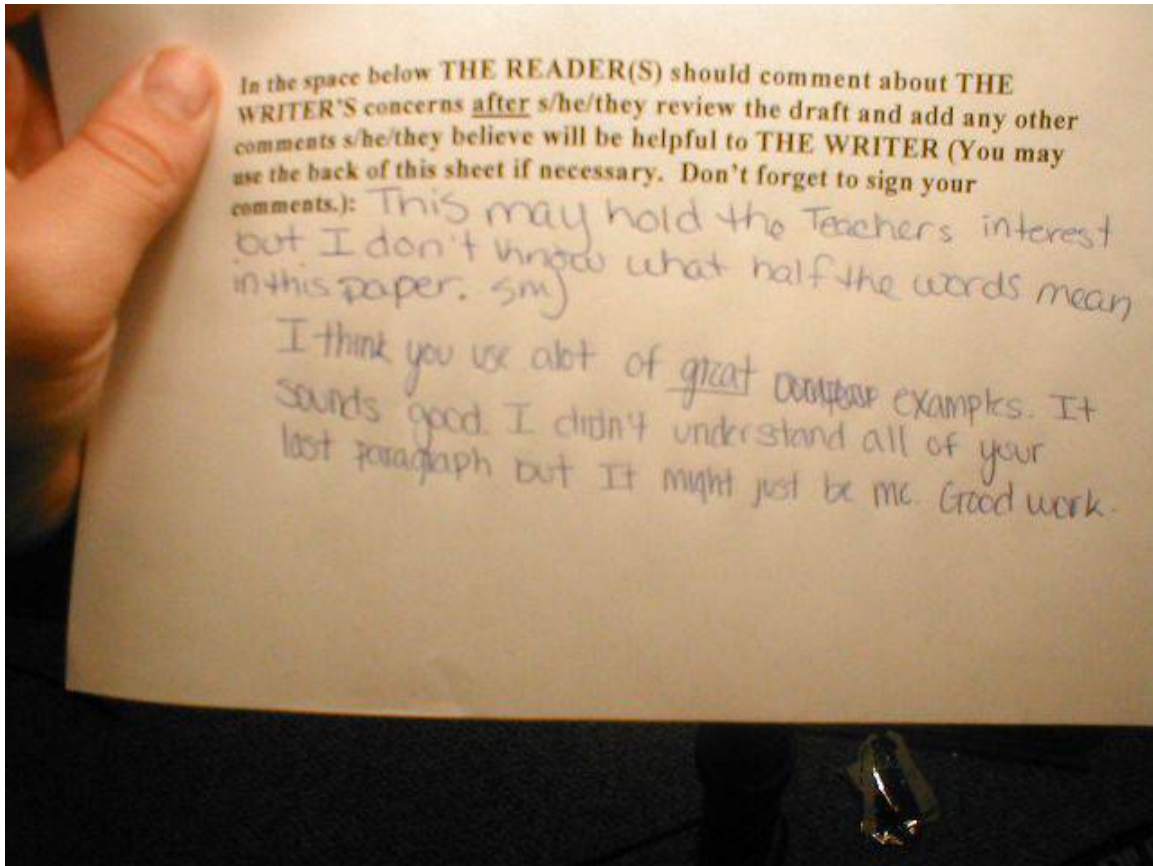 In the space below THE READER(S) should comment about THE
WRITER'S concerns after s/he/they review the draft and add any other
comments s/he/they believe will be helpful to THE WRITER (You may
use the back of this sheet if necessary. Don't forget to sign your
comments.): This may hold the Teachers interest
but I don't know what half the words mean
in this paper. smj
I think you use alot of great examples. It
sounds good. I didn't understand all of your
last paragraph but It might just be me. Good work.